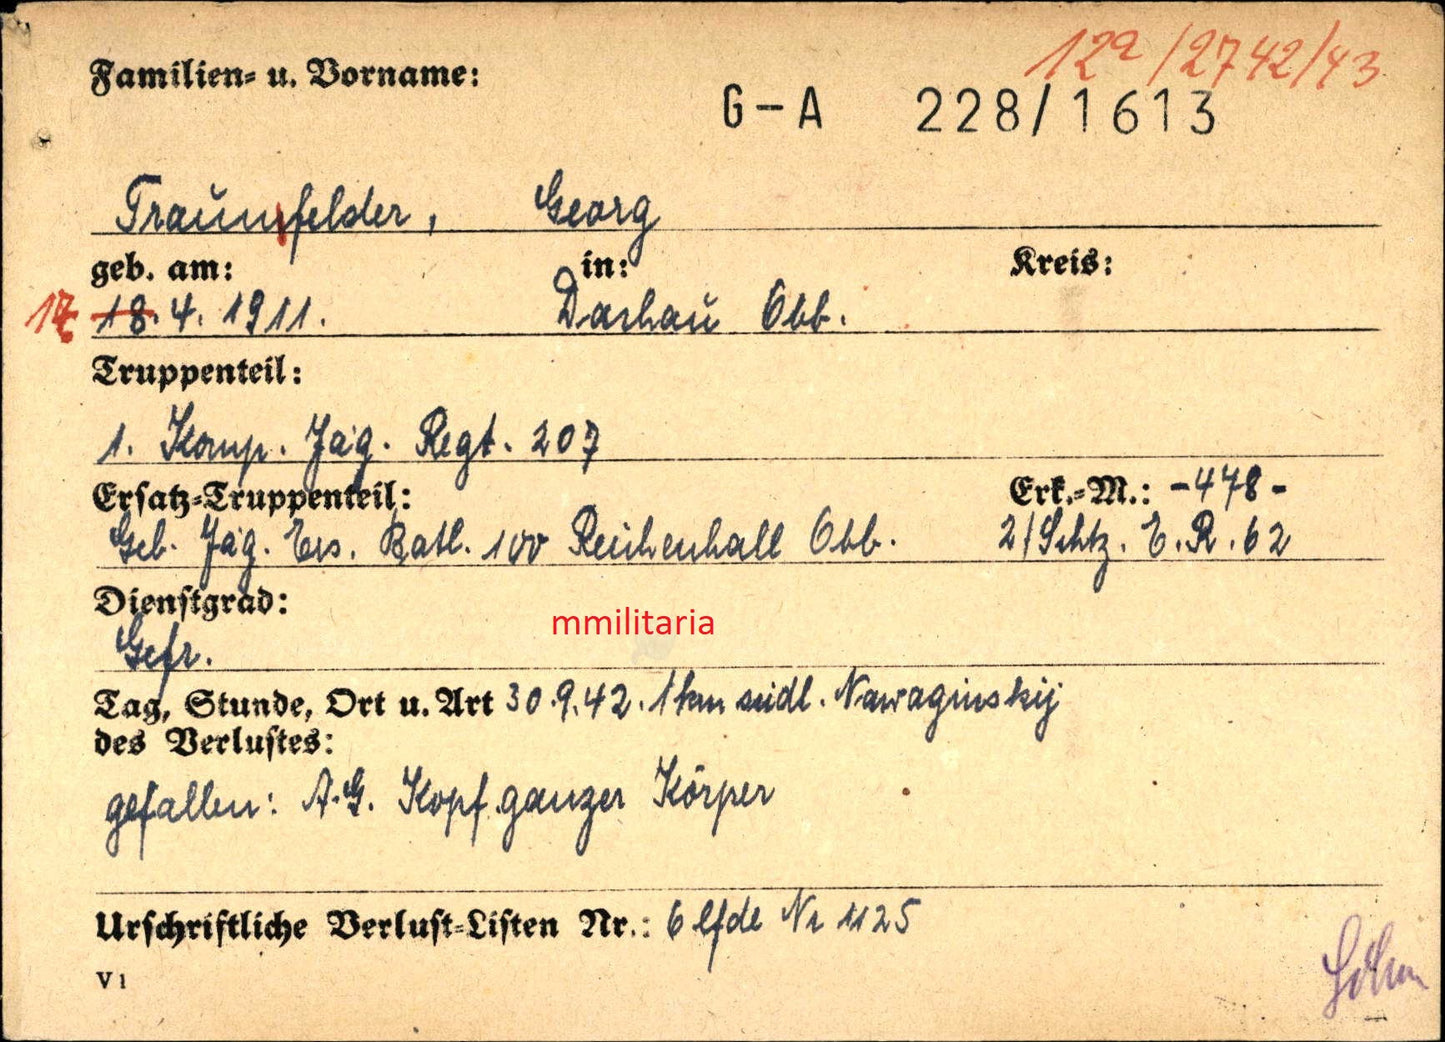 12a/2742/43
Familien- u. Vorname:
G-A 228/1613
Traumfelder, Georg
geb. am: in: Kreis:
17 18. 4. 1911. Dachau Obb.
Truppenteil:
1. Komp. Jäg. Regt. 207
Ersatz-Truppenteil: Erk.-M.: -478-
Geb. Jäg. Ers. Batl. 100 Reichenhall Obb. 2/Schtz. E.R. 62
Dienstgrad:
mmilitaria
Gefr.
Tag, Stunde, Ort u. Art 30.9.42. 1 km südl. Nawaginskij
des Verlustes:
gefallen: A.G. Kopf ganzer Körper
Urschriftliche Verlust-Listen Nr.: 6 lfde Nr 1125
V 1